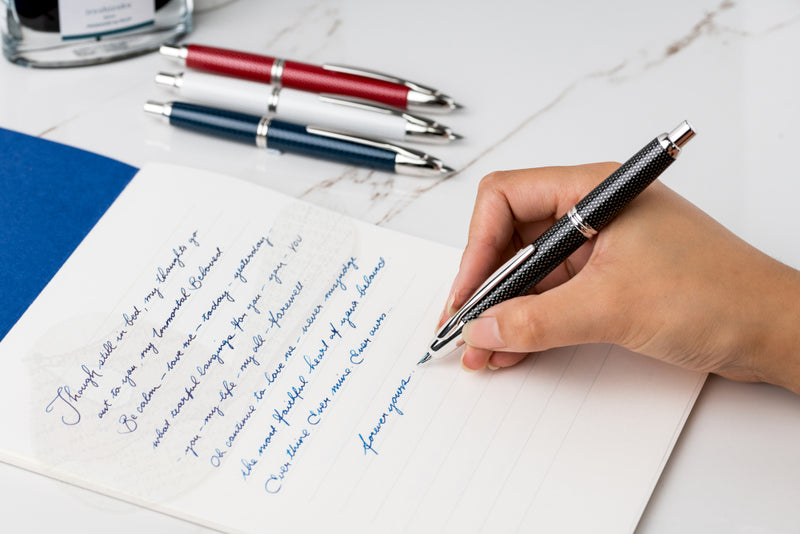 iroshizuku
Though still in bed, my thoughts go
out to you, my Immortal Beloved
Be calm - love me - today - yesterday
what tearful language for you - you - you
- you - my life - my all - farewell
Oh continue to love me - never misjudge
the most faithful heart of your beloved
Ever thine Ever mine Ever ours
forever yours